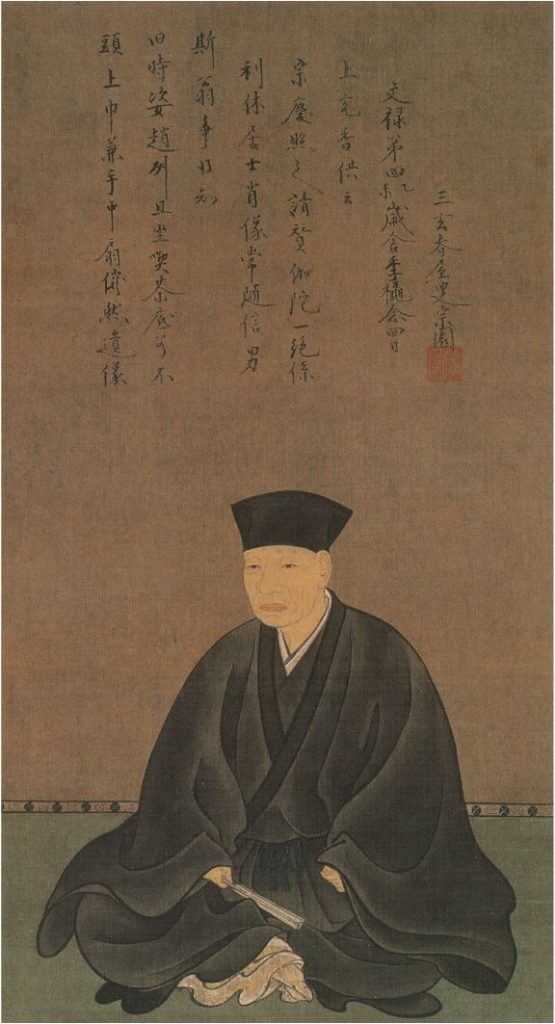 頭上巾兼手中扇儼然遺像
旧時姿趙州且坐喫茶底若不
斯翁争得知
利休居士肖像常随信男
宗慶照之請賛伽陀一絶係
上充香供云
文禄第四乙未歳舎季穐念四日
三玄春屋叟宗園